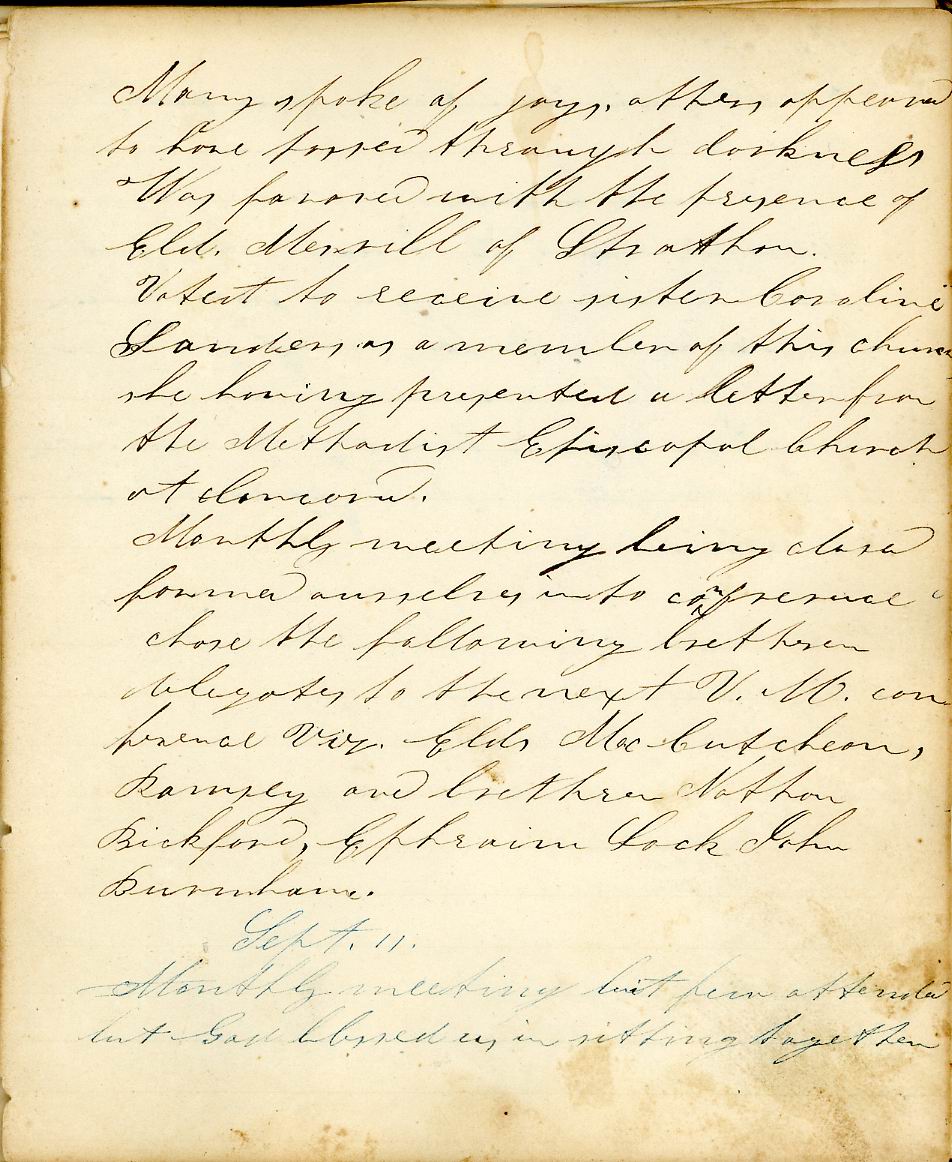 Many spoke of joys, others appeared
to have passed through darkness
Was favored with the presence of
Eld. Merrill of Stratham.
Voted to receive sister Caroline
Sanders as a member of this church
she having presented a letter from
the Methodist Episcopal Church
at Concord.
Monthly meeting being closed
formed ourselves into conference
chose the following brethren
delegates to the next V. M. con
ference Viz. Elds MacCutcheon,
Ramsey and brethren Nathan
Bickford, Ephraim Lock John
Burnham.
Sept. 11.
Monthly meeting but few attended
but God blessed us in sitting together